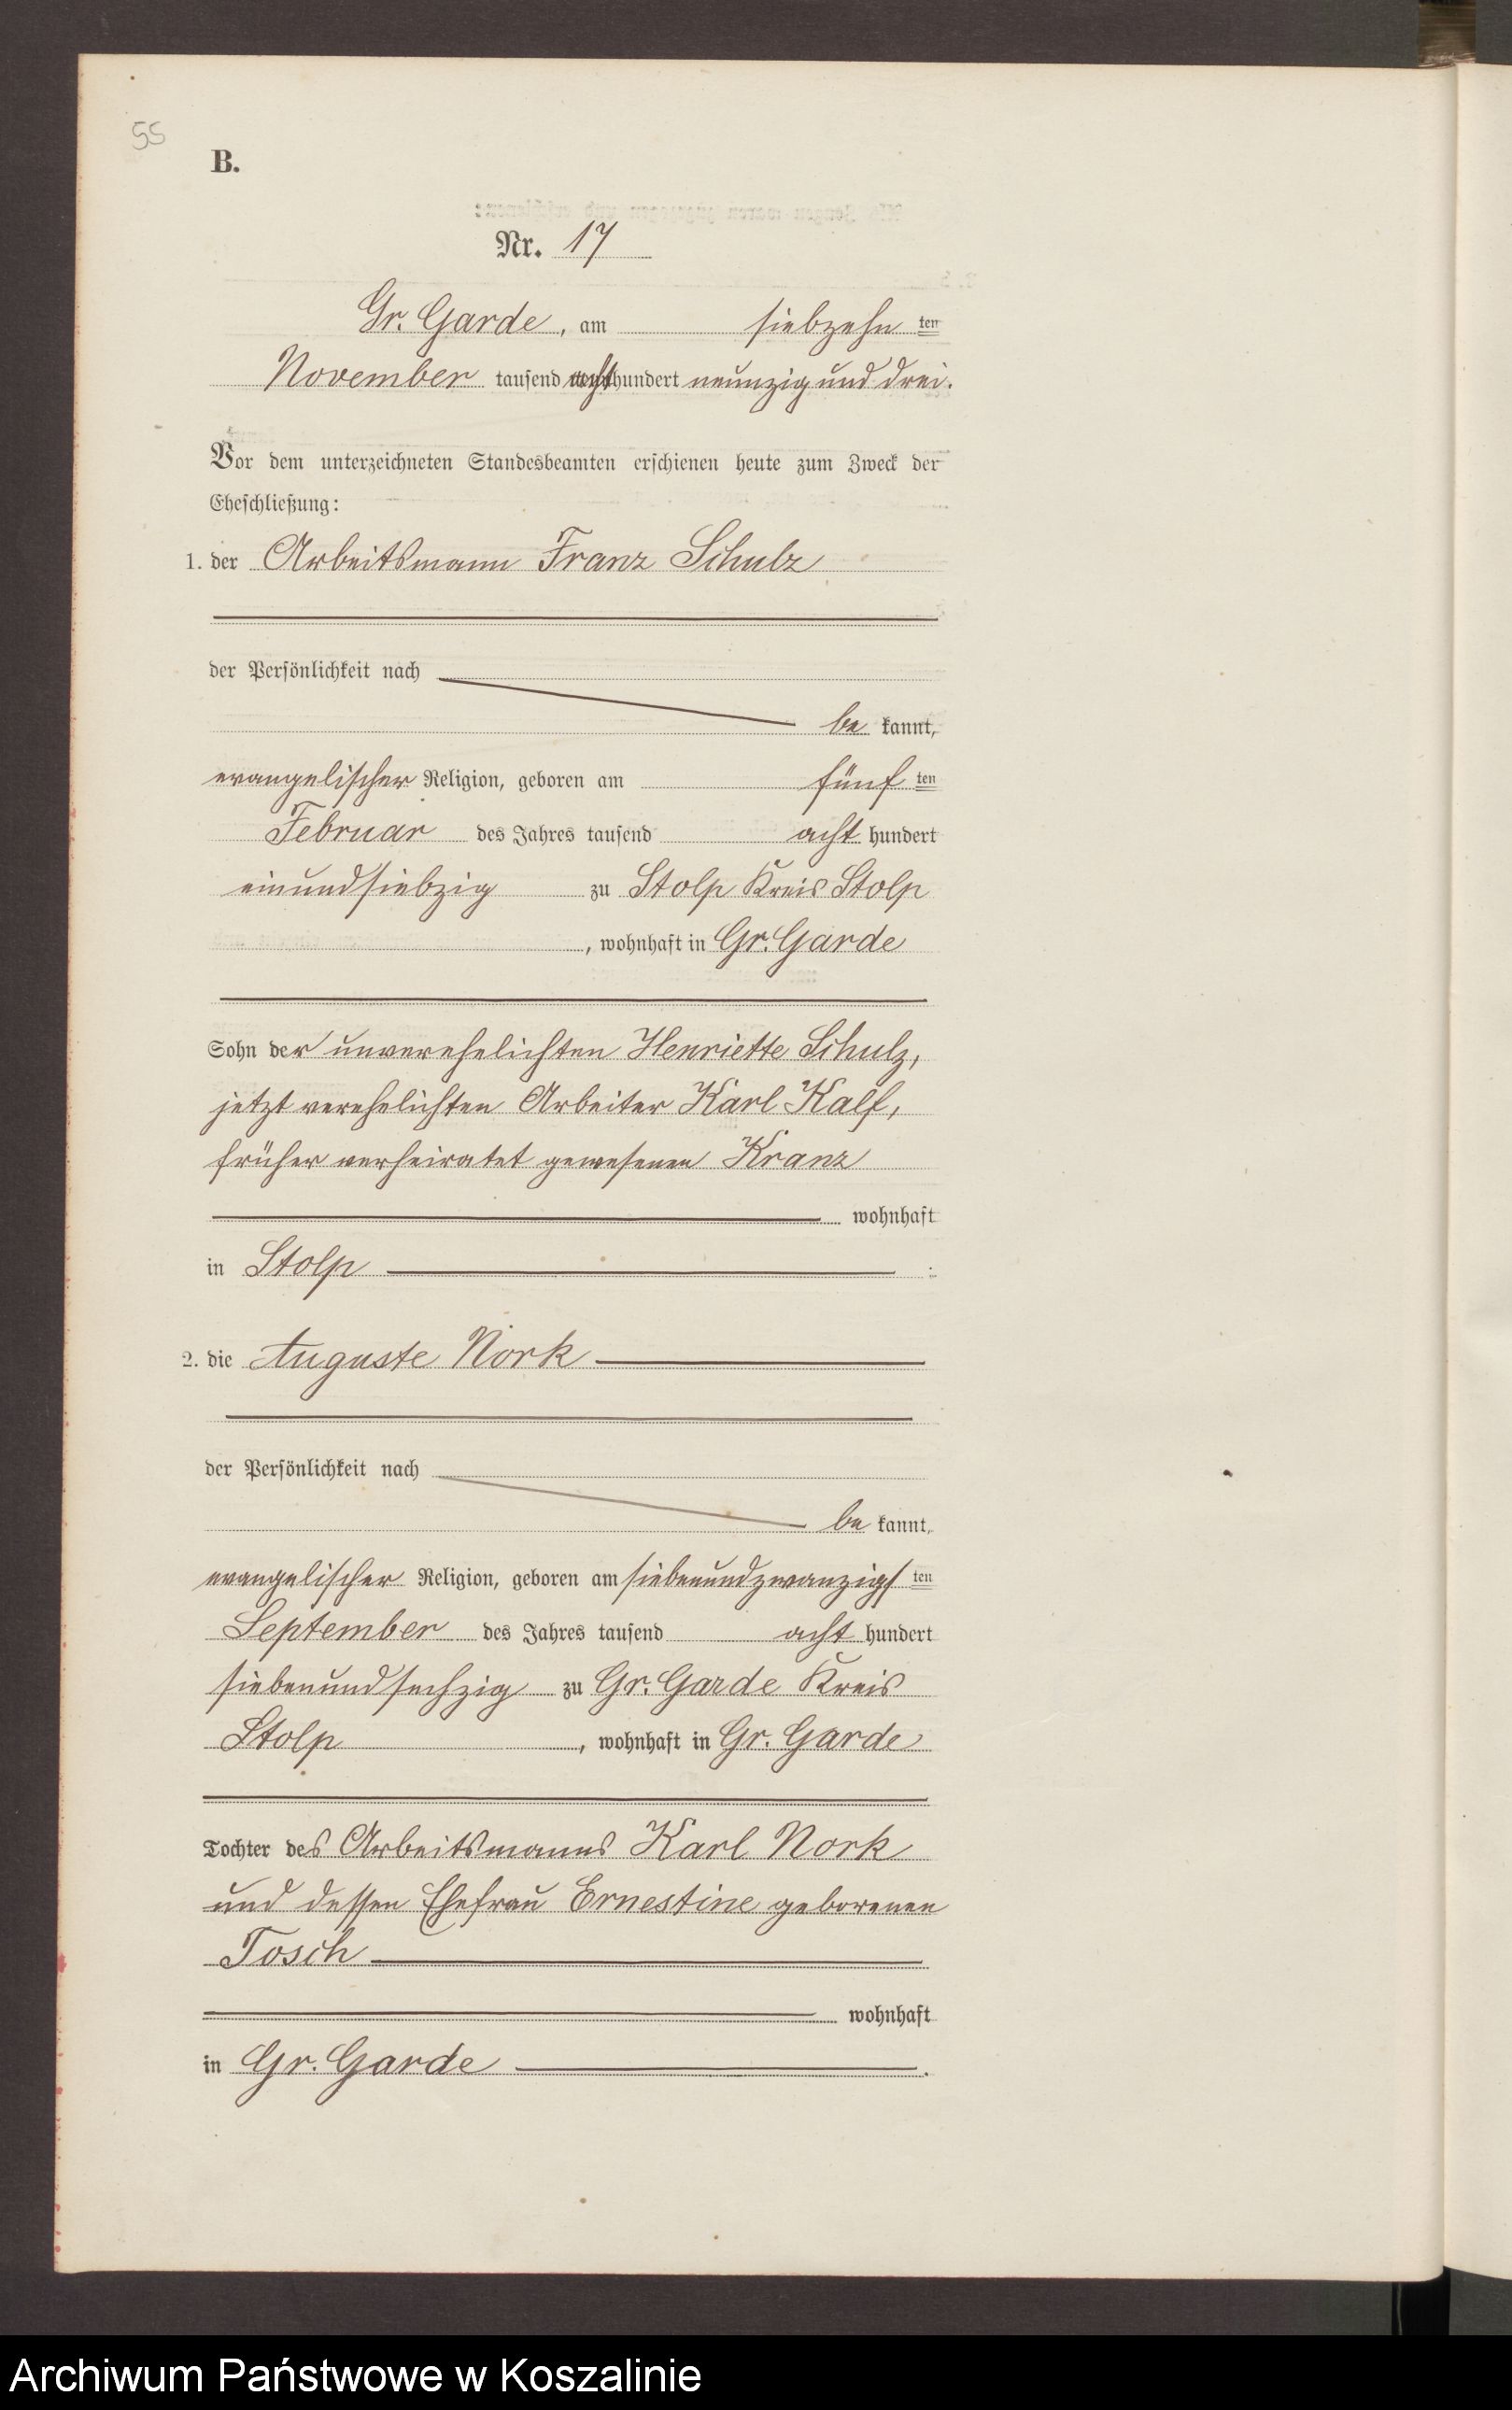 55
B.
Nr. 17
Gr. Garde, am siebzehn ten
November tausend achthundert neunzig und drei.
Vor dem unterzeichneten Standesbeamten erschienen heute zum Zweck der
Eheschließung:
1. der Arbeitsmann Franz Schulz
der Persönlichkeit nach
be kannt,
evangelischer Religion, geboren am fünf ten
Februar des Jahres tausend acht hundert
einundsiebzig zu Stolp Kreis Stolp
, wohnhaft in Gr. Garde
Sohn der unverehelichten Henriette Schulz,
jetzt verehelichten Arbeiter Karl Kalf,
früher verheiratet gewesenen Kranz
wohnhaft
in Stolp :
2. die Auguste Nork
der Persönlichkeit nach
be kannt,
evangelischer Religion, geboren am siebenundzwanzigs ten
September des Jahres tausend acht hundert
siebenundsechzig zu Gr. Garde Kreis
Stolp , wohnhaft in Gr. Garde
Tochter des Arbeitsmanns Karl Nork
und dessen Ehefrau Ernestine geborenen
Tosch
wohnhaft
in Gr. Garde .
Archiwum Państwowe w Koszalinie